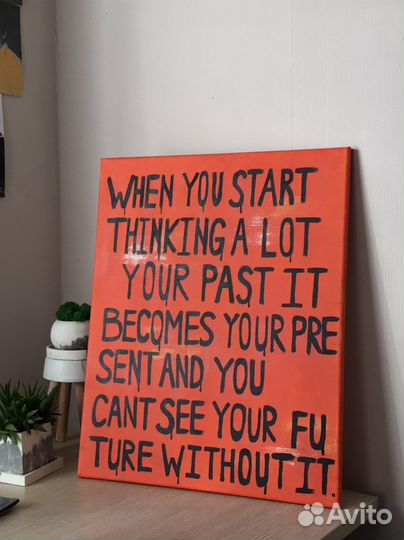 WHEN YOU START
THINKING A LOT
YOUR PAST IT
BECOMES YOUR PRE
SENT AND YOU
CANT SEE YOUR FU
TURE WITHOUT IT.
Avito